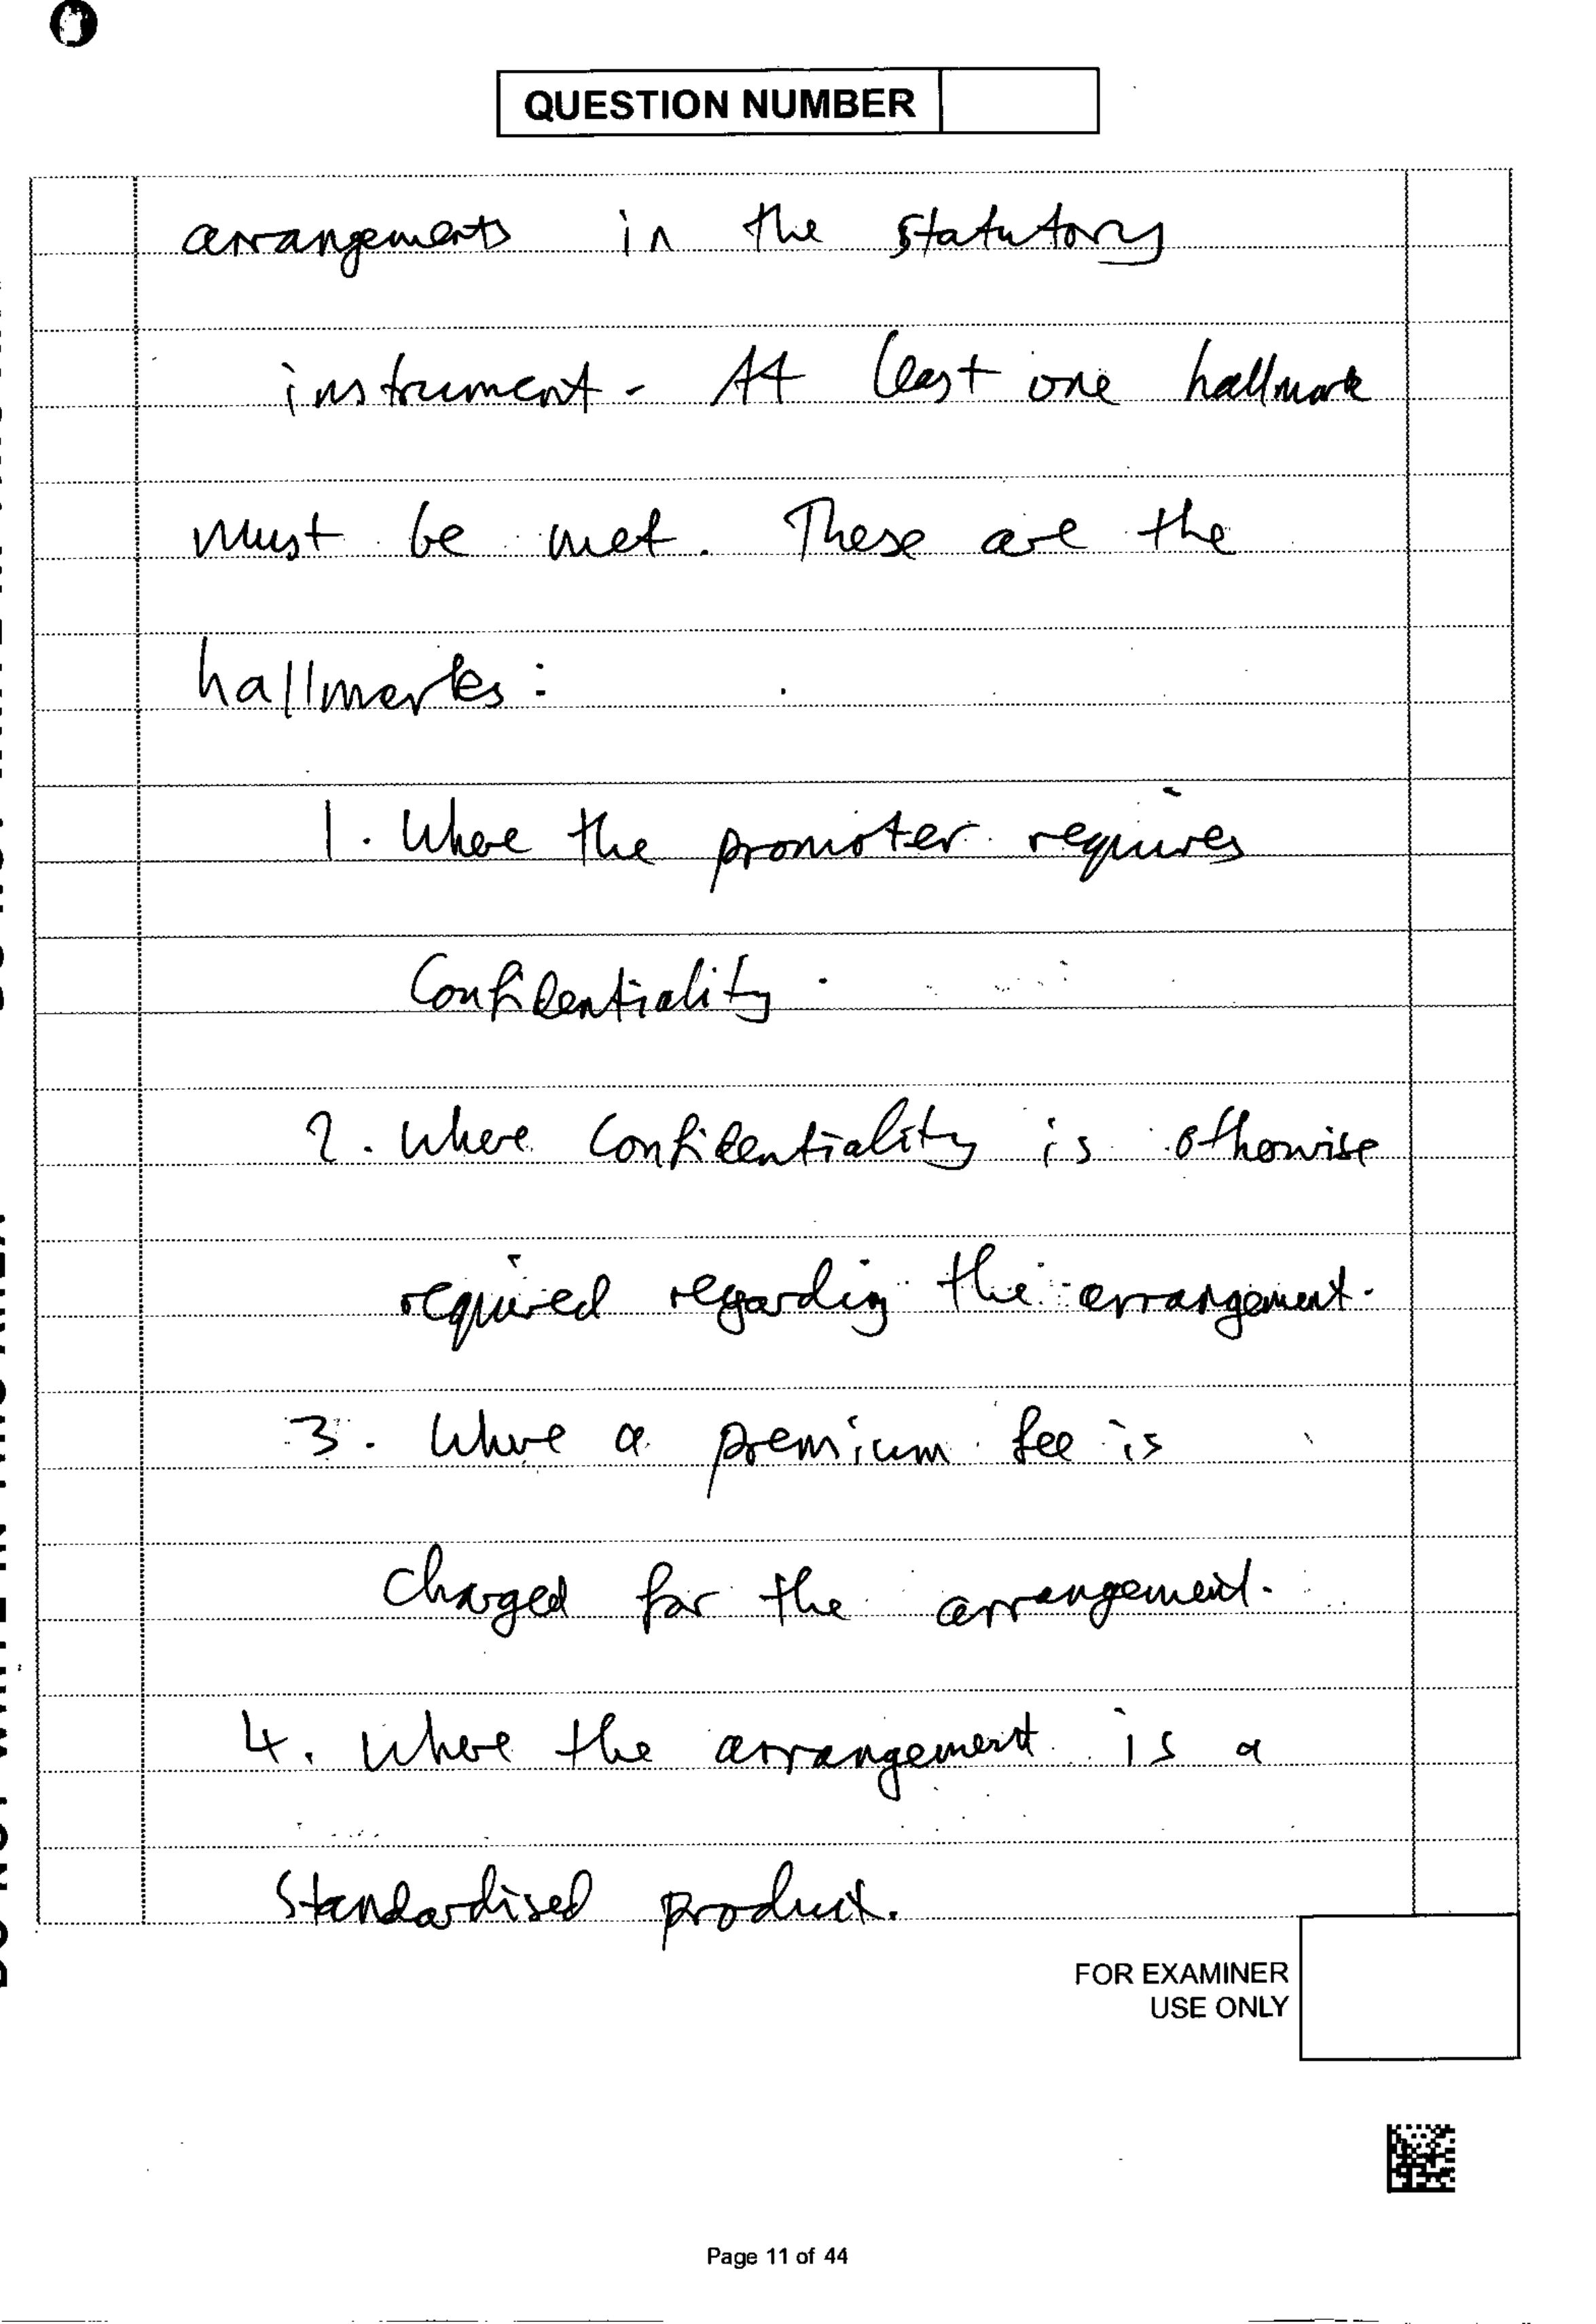 QUESTION NUMBER
arrangements in the statutory
instrument. At least one hallmark
must be met. These are the
hallmarks:
1. Where the promoter requires
Confidentiality.
2. Where Confidentiality is otherwise
required regarding the arrangement.
3. Where a premium fee is
charged for the arrangement.
4. Where the arrangement is a
Standardised product.
FOR EXAMINER
USE ONLY
Page 11 of 44